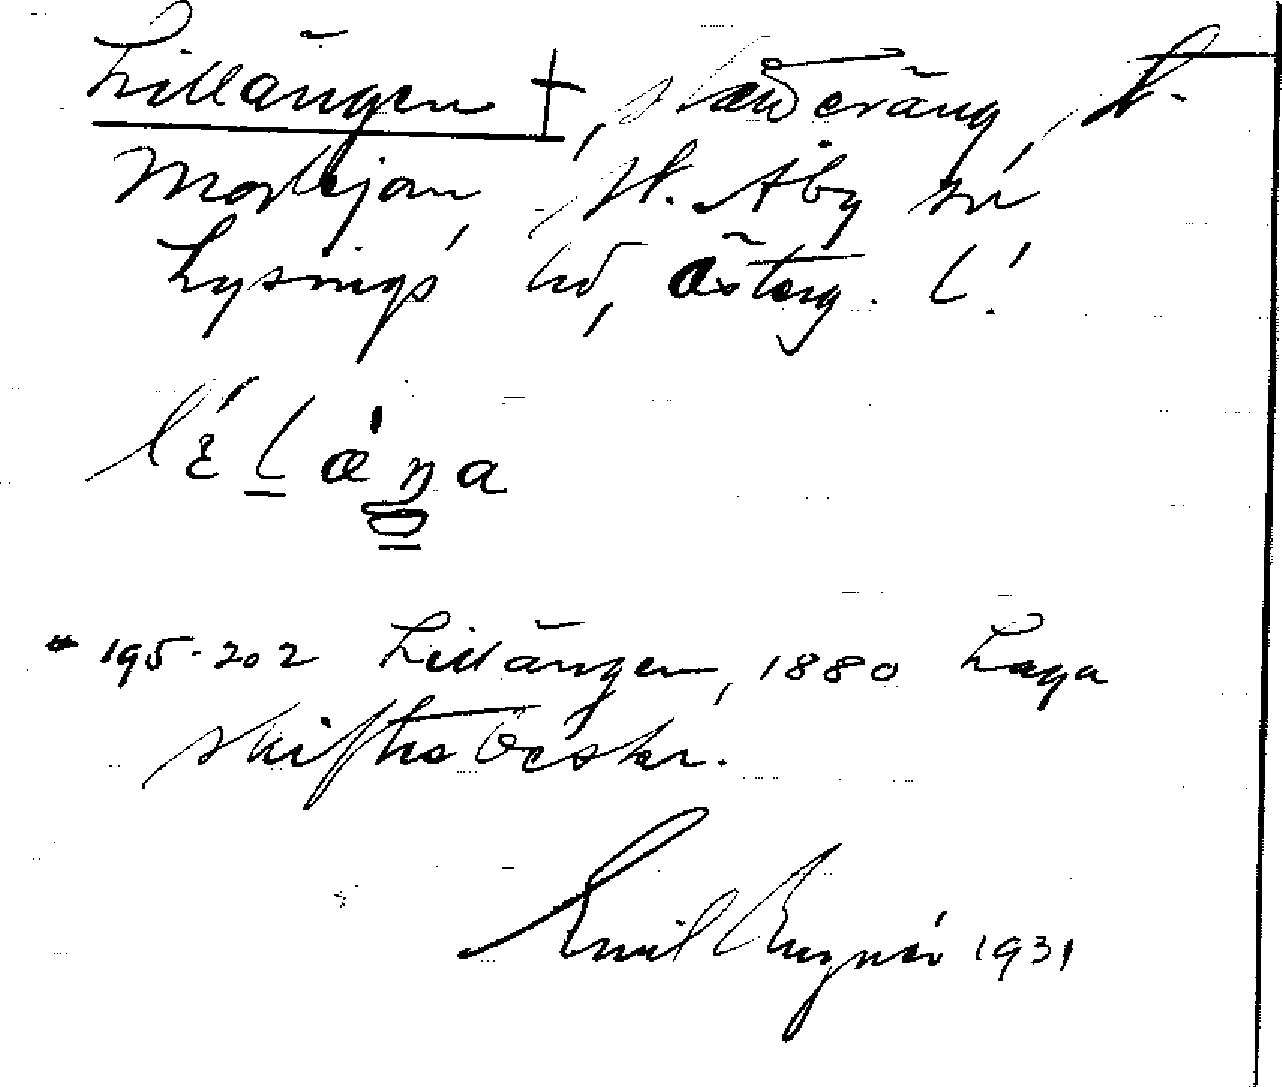 Lillängen †, slåtteräng, St.
St. Åby sn
Lysings hd, Österg. l.
* 195-202 Lillängen, 1880 Laga
skiftesbeskr.
Emil 1931